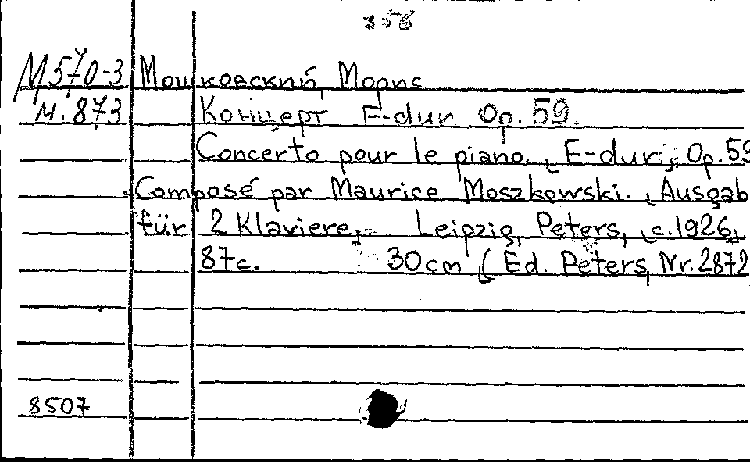 356
М570-3 Мошковский, Морис
М.873 Концерт E-dur Op. 59.
Concerto pour le piano, [E-dur], Op. 59
Composé par Maurice Moszkowski. [Ausgab
für 2 Klaviere]. Leipzig, Peters, [c. 1926]
87с. 30cm (Ed. Peters, Nr. 2872
8507